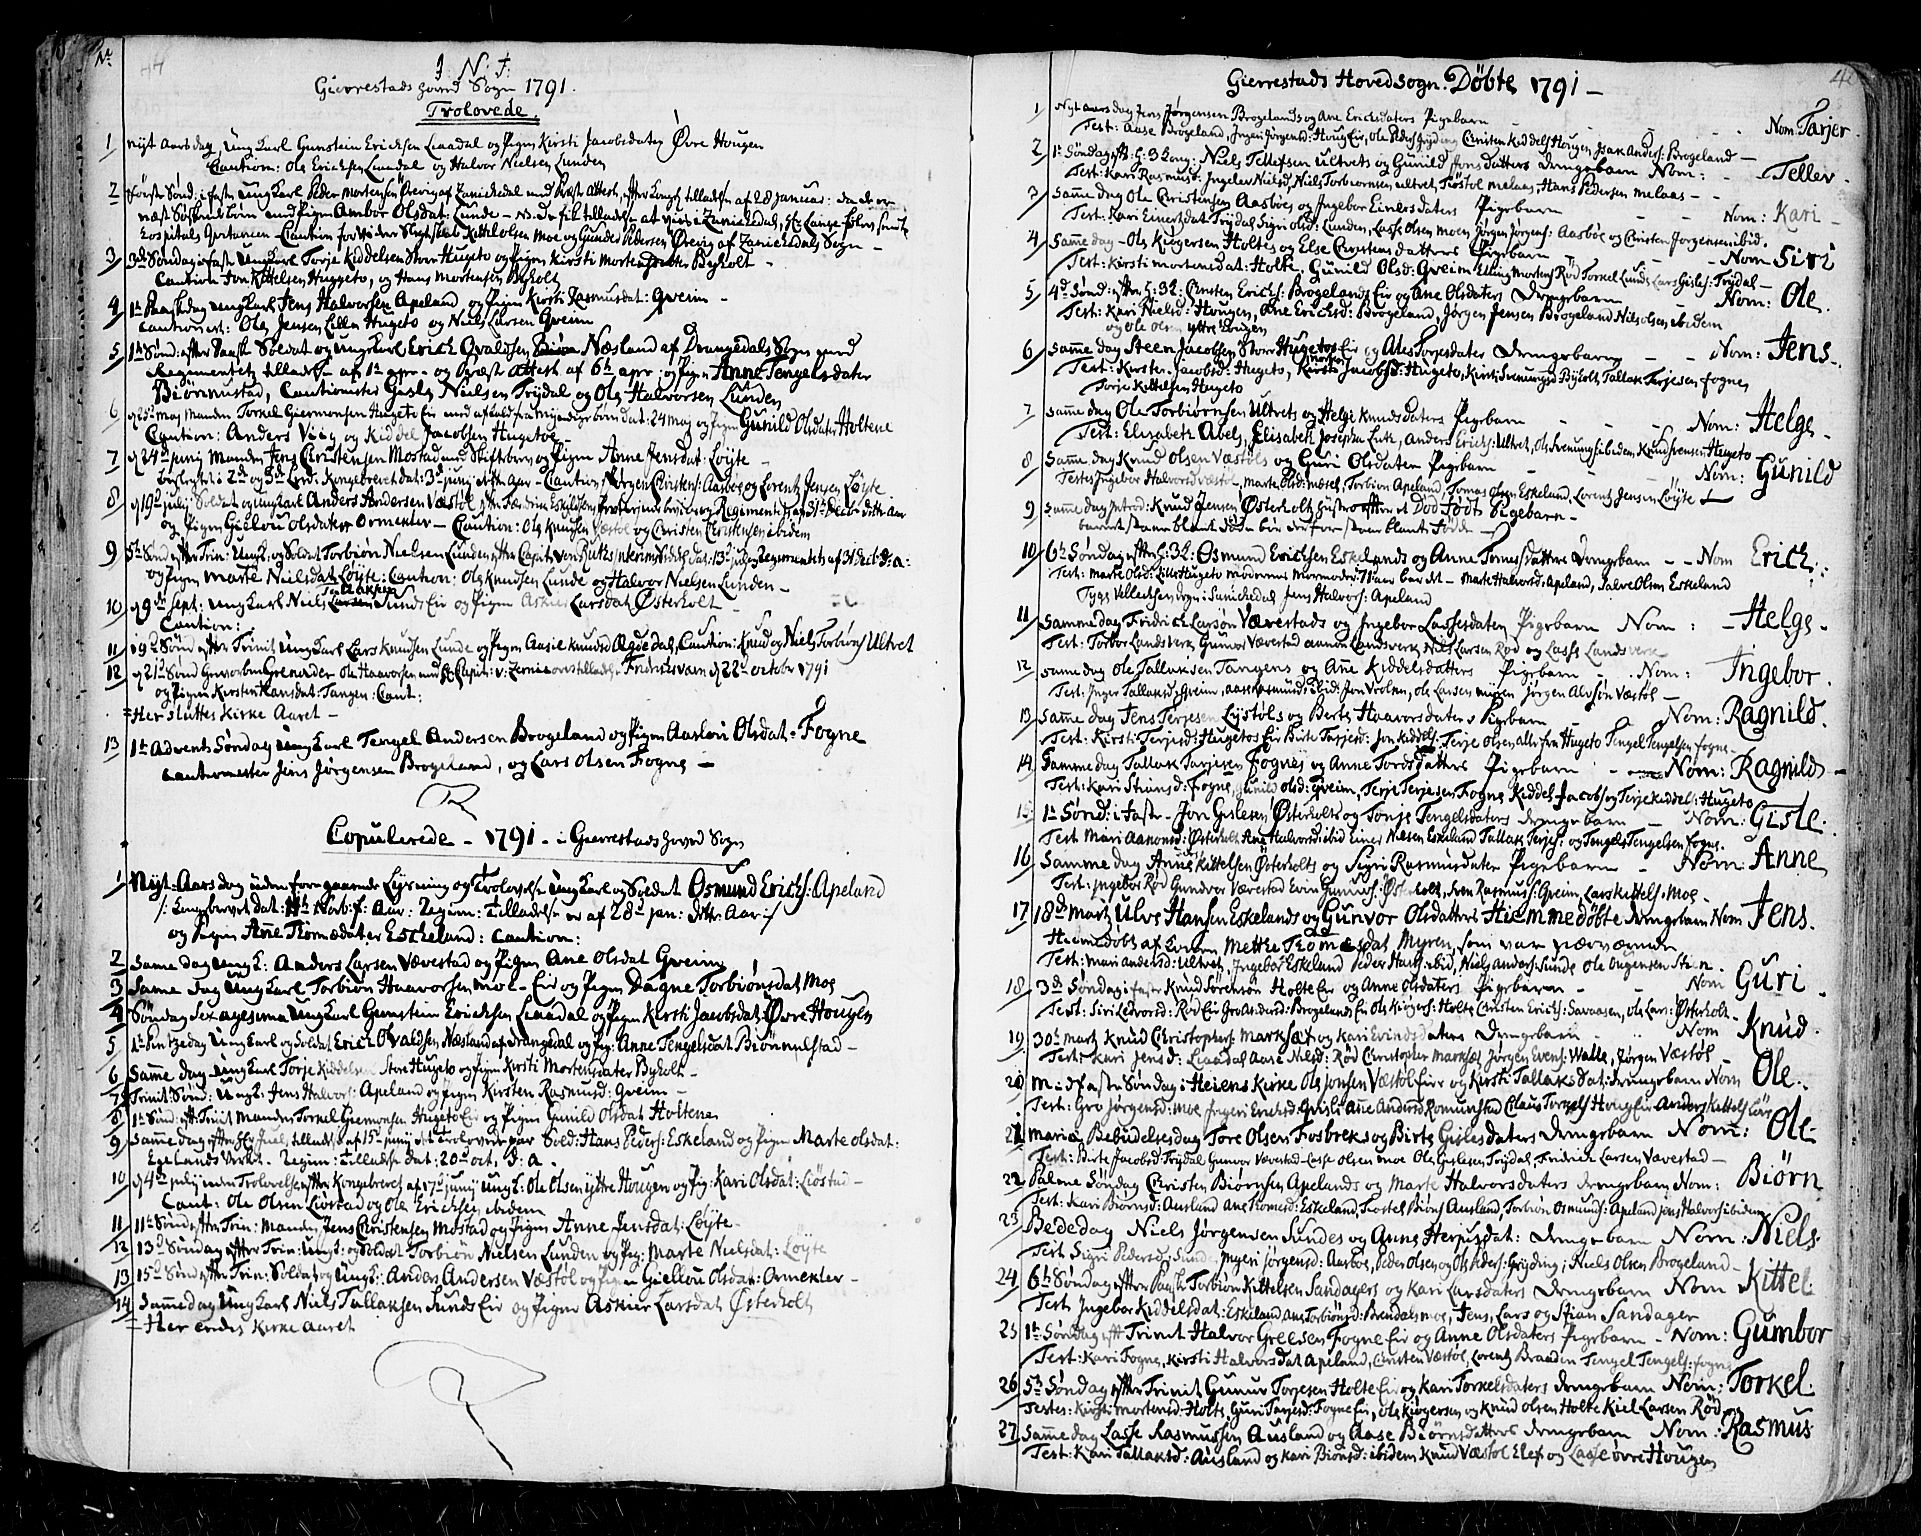 No
44
J: N: J:
Gierrestads Hoved Sogn 1791.
Trolovede.
1 Nyt Aarsdag, Ung Karl Gunstein Ericksen Laadal og Pigen Kirsti Jacobsdater Øvre Hougen
Caution: Ole Ericksen Lundal og Halvor Nielsen Lunden
2 første Sønd: i faste Ung Karl Peder Mortensen Ørevig af Zanickedal med Attest, efter tilladelse af 28 Januar: da de er
næst Søskende børn med Pigen Ambor Olsdat: Lunde
Hospitals Caution Kittel Olsen Moe og Gunder Pedersen Ørevig af Zanickedals Sogn -
3 3de Søndag i faste Ung Karl Torje Kiddelsen Store Hugeto og Pigen Kirsti Mortensdatter Byholt -
Caution Jon Kittelsen Huggeto, og Hans Mortensen Byholt
4 1te Paaskdag Ung Karl Jens Halvorsen Apeland og Pigen Kirsti Rasmusdat: Gveim -
Cautionist: Ole Jensen Lille Hugeto og Niels Larsen Gveim
5 1te Sønd: efter Paask Soldat og Ung Karl Erich Ovaldsen Næsland af Drangedals Sogn med
Regimentets tilladelse af 1te apr - og Præst Attest af 6te apr og Pigen Anne Tengelsdater
Biørnnustad, Cautionister Gisle Nielsen Trydal og Ole Halvorsen Lunden
6 Manden Torkel Giermonsen Hugeto dat: 24 maj og Pigen Gunild Olsdater Holtene
Caution: Anders Viig og Kiddel Jacobsen Hugetoe -
7 24de junij Manden Jens Christensen Mostad med Skiftebrev og Pigen Anne Jensdat: Løyte -
beslegtet i 2den og 3die Led: Kongebrevet dat: 3de junij Caution, Jørgen Christens: Aasboe og Lorentz Jensen Løyte
8 19de julij Soldat og ung karl Anders Andersen Væstøl
og Pigen Giellou Olsdater Ormekter - Caution: Ole Knudsen Væstøl og Christen Christensen ibidem
9 5te Sønd: efter Trin: Ungk: og Soldat Torbiørn Nielsen Lunden
og Pigen Marte Nielsdat Løyte: Caution: Ole Knudsen Lunde og Halvor Nielsen Lunden -
10 9de Sept: Ung Karl Niels Tallaksen Sunds Eie og Pigen Askier Larsdat Østerholt -
Caution:
11 19de Sønd efter Trinit Ung Karl Lars Knudsen Lunde og Pigen Aasie Knudsd Ægdedal, Caution: Knud og Niels Torbiøns Ultvet
12 21de Sønd Gevorben Grenader Ole Haavorsen Fridrichsværn 22de octobr 1791
og Pigen Kirsten Hansdat: Tangen: Caut:
= Her sluttes Kirke Aaret -
13 1te Advents Søndag Ung Karl Tengel Andersen Brogeland og Pigen Aaslou Olsdat - Fogne
Cautionister Jens Jørgensen Brogeland, og Lars Olsen Fogne -
Copulerede - 1791 - i Gierrestads Hoved Sogn
1 Nyt-Aarsdag uden foregaaende Lysning og Trolovelse Ung Karl og Soldat Osmund Erichs: Apeland
/: Kongebrevet dat: 11te Novb: f: Aar: Regim: Tilladelse er af 28de jan: dette Aar :/
og Pigen Ane Tomædater Eskeland: Caution:
2 Same dag Ung K: Anders Larsen Vævestad og Pigen Ane Olsdat Gveim
3 Same dag Ung Karl Torbiøn Haavorsen Moe - Eie og Pigen Dagne Torbiønsdat Moe
4 Søndag Sexagesima Ung Karl Gunstein Ericksen Laadal og Pigen Kirsti Jacobsdat: Øvre Hougen
5 1te Pintzedag Ung Karl og Soldat Erich Ovaldsen Næsland af Drangedal og Pig: Anne Tengelsdat Biønnulstad -
6 Samme dag Ung Karl Torje Kiddelsen Store Hugeto og Pigen Kirsti Mortensdater Byholt -
7 Trinit: Sønd: Ung K: Jens Halvors: Apeland og Pigen Kirsten Rasmusd: Gveim -
8 1te Sønd: eft Trinit Manden Torkel Giermonsen Hugeto Eie og Pigen Gunild Olsdat Holtene
9 Samme dag tillad: af 15de junij Trolovede par Sold: Hans Peders: Eskeland og Pigen Marte Olsdat:
Egelands Verket - Regim: Tilladelse dat: 20de oct. d: a.
10 4de julij uden Trolovelse, efter Kongebrevet af 17de junij Ung K: Ole Olsen ydtre Hougen og Pig: Kari Olsdat: Løstad -
Caut: Ole Olsen Løstad og Ole Erichsen ibidem
11 11te Sønd efter Trin: Manden Jens Christensen Mostad og Pigen Anne Jensdat: Løyte -
12 13de Søndag efter Trin: Ung K: og Soldat Torbiøn Nielsen Lunden og Pig: Marte Nielsdat: Løyte
13 15de Sønd efter Trin: Soldat og Ung K: Anders Andersen Væstøl og Pigen Giellou Olsdat: Ormekter -
14 Sammedag Ung Karl Niels Tallaksen Sunds Eie og Pigen Askier Larsdat Østerholt
= Her endes Kirke Aaret
Gierrestads Hovedsogn. Døbte 1791 -
1 Nyt aarsdag Jens Jørgensen Brogelands og Ane Erichsdaters Pigebarn - - - Nom: Tarjer.
Test: Aase Brogeland, Ingeri Jørgensd: Houg Eie, Ole Peders Gryding, Christen Kiddels Hougen, Isak Anders: Brogeland -
2 1te Søndag eft: H: 3 Kong: Niels Tellefsen Ultvets og Gunild Jensdatters drengebarn Nom: - Tellev.
Test: Kari Rasmusd: Ingelev Nielsd, Niels Torbiørnsen ultvet, Tiøstol Melaas, Hans Pedersen Melaas -
3 Samme dag Ole Christensen Aasboes og Ingebor Einersdaters Pigebarn - - - Nom: Kari -
Test: Kari Einersdat Trydal, Sigri Olsd: Lunden, Lasse Olsen Moen, Jørgen Jørgens: Aasboe og Christen Jørgensen ibid.
4 Samme dag - Ole Kiøgersen Holtes og Else Christensdatters Pigebarn - - - Nom Siri
Test: Kirsti Mortensdat: Holte, Gunild Olsd: Gveim, Elling Mortens Rød, Torkel Lunde, Lars Gisles: Trydal -
5 4de Sønd: efter H: 3 K: Christen Erichs: Brogelands Eie og Ane Olsdaters Drengebarn - Nom: Ole.
Test: Kari Nielsd: Hougen, Ane Ericksd: Brogeland, Jørgen Jensen Brogeland, Nils Olsen ibidem
og Ole Olsen yttre Hougen
6 Samme dag Steen Jacobsen Store Hugetos Eie og Ales Torjesdaters Drengebarn - - Nom: Jens -.
Test: Kirsten Jacobsd: Hugeto, Kirsti Jacobsd: Hugeto, Kirsti Sveinungsd Byholt, Tallak Terjesen Fogne,
Torje Kittelsen Hugeto
7 Samme dag Ole Torbiørnsen Ultvets og Helge Knudsdaters Pigebarn - - - Nom: Helge -
Test: Elisabeth Abel, Elisabeth Josepha Lutk, Anders Erichs: Ultvet, Ole Sveinungs ibidem, Knud Svensen Hugeto
8 Samme dag Knud Olsen Væstøls og Guri Olsdaters Pigebarn - Nom: Gunild
Testes Ingebor Halvorsd Væstøl, Marte Olsd: Mæsel, Torbiøn Apeland, Tomas Olsen Eskeland, Lorentz Jensen Løyte -
9 Samme dag introd: Knud Jensen Østerholts Hustroe efter et Død Født Pigebarn -
barnet staaer blant døde bør derfor staae blant Fødde -
10 6te Søndag efter H: 3 K: Osmund Erichsen Eskelands og Anne Tomesdatters drengebarn - - Nom Erich.:
Test: Marte Olsd: Lille Hugeto moderens Mormoder 71 aar bar det - Marte Halvorsd: Apeland, Salve Olsen Eskeland
Tyge Vellechsen, Sogn: Sanickedal, Jens Halvors: Apeland
11 Sammedag Fridrick Larsøn Vævestads og Ingebor Lassesdaters Pigebarn Nom: - Helge -
Test: Torbor Landsverk, Gunvor Vævestad, Landsverk, Niels Larsen Rød og Lasse Landsverk
12 Samme dag Ole Tallaksen Tangens og Ane Kiddelsdatters Pigebarn - Nom: Ingebor.
Test: Inger Tallaksd: Gveim, Aase Rasmusd: ibid: Jon Vrolsen, Ole Larsen Myren, Jørgen Alvsøn Væstøl -
13 Samme dag Jens Terjesen Lystøls og Berte Haavorsdaters Pigebarn - Nom: Ragnild.
Test: Kirsti Terjesd: Hugetos Eie, Birte Tarjesd: Jon Kiddels: Terje Olsen alle fra Hugeto, Tengel Tengelsen Fogne -
14 Sammedag Tallak Tarjesen Fognes og Anne Tordsdatters Pigebarn - Nom: Ragnild -
Test: Kari Stiansd: Fogne, Gunild Olsd: Gveim, Terje Terjesen Fogne, Kiddel Jacobs og Terje Kiddels: Hugeto
15 1te Sønd: i faste - Jon Gislesen Østerholts og Tonje Tengelsdaters drengebarn - Nom: Gisle.
Test Mari Aanonsd: Østerholt, Ane Halvorsd ibid, Einer Nielsen Eskeland, Tallak Terjes: og Tengel Tengelsen Fogne.
16 Samme dag Anne Kittelsen Østerholts og Sigri Rasmusdater Pigebarn - Nom: Anne
Test: Ingebor Rød, Gundvor Vævestad, Even Gunufs: Østerholt, Sven Rasmuss: Gveim, Lars Kittels: Moe -
17 18de Marts Ulve Hansen Eskelands og Gunvor Olsdatters Hiemmedøbte drengebarn Nom Jens.
Hiemedøbt af Konen Mette Tomesdat Myren, som var nærværende
Test: Mari Andersd: Ultvet, Ingebor Eskeland, Peder Hans: ibid, Niels Anders: Sunde, Ole
18 3de Søndag i faste Knud Sørensøn Holte Eie og Anne Olsdaters Pigebarn - - Nom Guri.
Test: Siri Ledvorsd: Rød Eie, Gro Aslesd: Brogelands Eie, Ole Kiøgers: Holte, Christen Erichs: Savaasen, Ole Lars: Østerholt -
19 30te Marts Knud Christophers Marksæt og Kari Evindsdaters Drengebarn - - Nom Knud.
Test: Kari Jensd: Laadal, Aane Nilsd: Rød, Christopher Marksæt, Jørgen Evens: Walle, Jørgen Væstøl -
20 Midfaste Søndag i Heiens Kirke Ole Jonsen Væstøl Eie og Kirsti Tallaksdat: drengebarn Nom Ole.
Test: Gro Jørgensd: Moe, Ingeri Erichsd: Grisli, Ane Andersd Romunstad, Claus Torkels Houg Eie, Anders Kittels Løite
21 Mariæ Bebudelsesdag Tore Olsen Fosbreks og Birte Gislesdaters drengebarn Nom: Ole
Test: Birte Jacobsd: Trydal, Gunvor Vævestad - Lasse Olsen Moe, Ole Gislesen Trydal, Fridrich Larsen Vævestad -
22 Palme Søndag Christen Biørnsen Apelands og Marte Halvorsdaters drengebarn Nom: Biørn
Test: Kari Biørnsd: Ausland, Ane Tomesd: Eskeland, Tostel Biøns Ausland, Torbiøn Osmunds: Apeland, Jens Halvors ibidem
23 Bededag Niels Jørgensen Sundes og Anne Herjusdat: Drengebarn Nom: Niels
Test Sigri Pedersd: Sunde, Ingeri Jørgensd: Aasboe, Peder Olsen og Ole Peders: Gryding, Niels Olsen Brogeland -
24 6te Søndag efter Pask Torbiøn Kittelsen Sandagers og Kari Larsdaters Drengebarn Nom Kittel
Test Ingebor Kiddelsdat: Eskeland, Ane Torbiønsd: Brendalsmoe, Jens, Lars og Stian Sandager
25 1te Søndag eft Trinit Halvor Greesen Fogne Eie og Anne Olsdaters Pigebarn - Nom: Gumbor
Test: Kari Fogne, Kirsti Halvorsdat Apeland, Christen Væstøl, Lorentz Braaden, Tengel Tengels: Fogne
26 5te Søndag efter Trinit Gunur Torjesen Holte Eie og Kari Torkelsdaters drengebarn Nom: Torkel
Testes: Kirsti Mortensd: Holte, Guri Tarjesd: Fogne Eie, Ole Kiøgersen og Knud Olsen Holte, Kiel Larsen Rød
27 Samme dag Lasse Rasmussen Ausland og Aase Biørnsdatters drengebarn Nom: Rasmus
Test: Kari Tallaksd: Ausland og Kari Biønsd: ibidem, Knud Væstøl, Elef og Lasse øvre Hougen